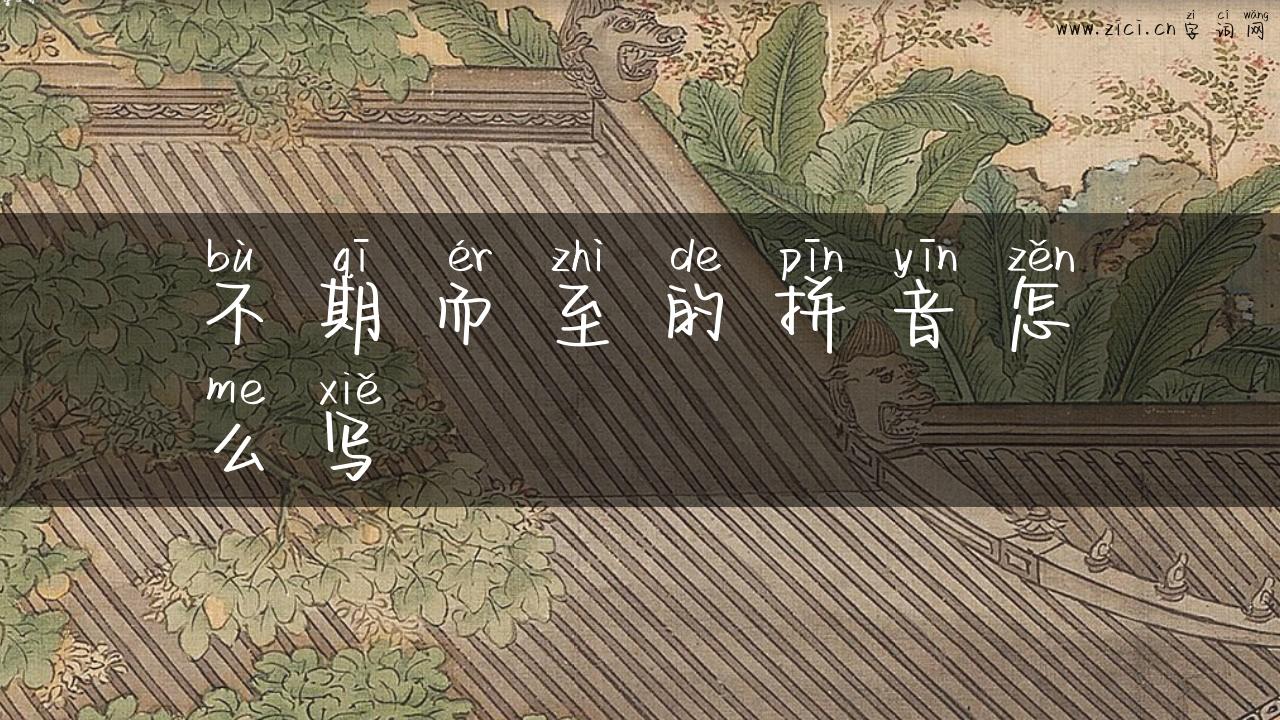 zì cí wǎng
www.zici.cn 字词网
bù qī ér zhì de pīn yīn zěn
不期而至的拼音怎
me xiě
么写